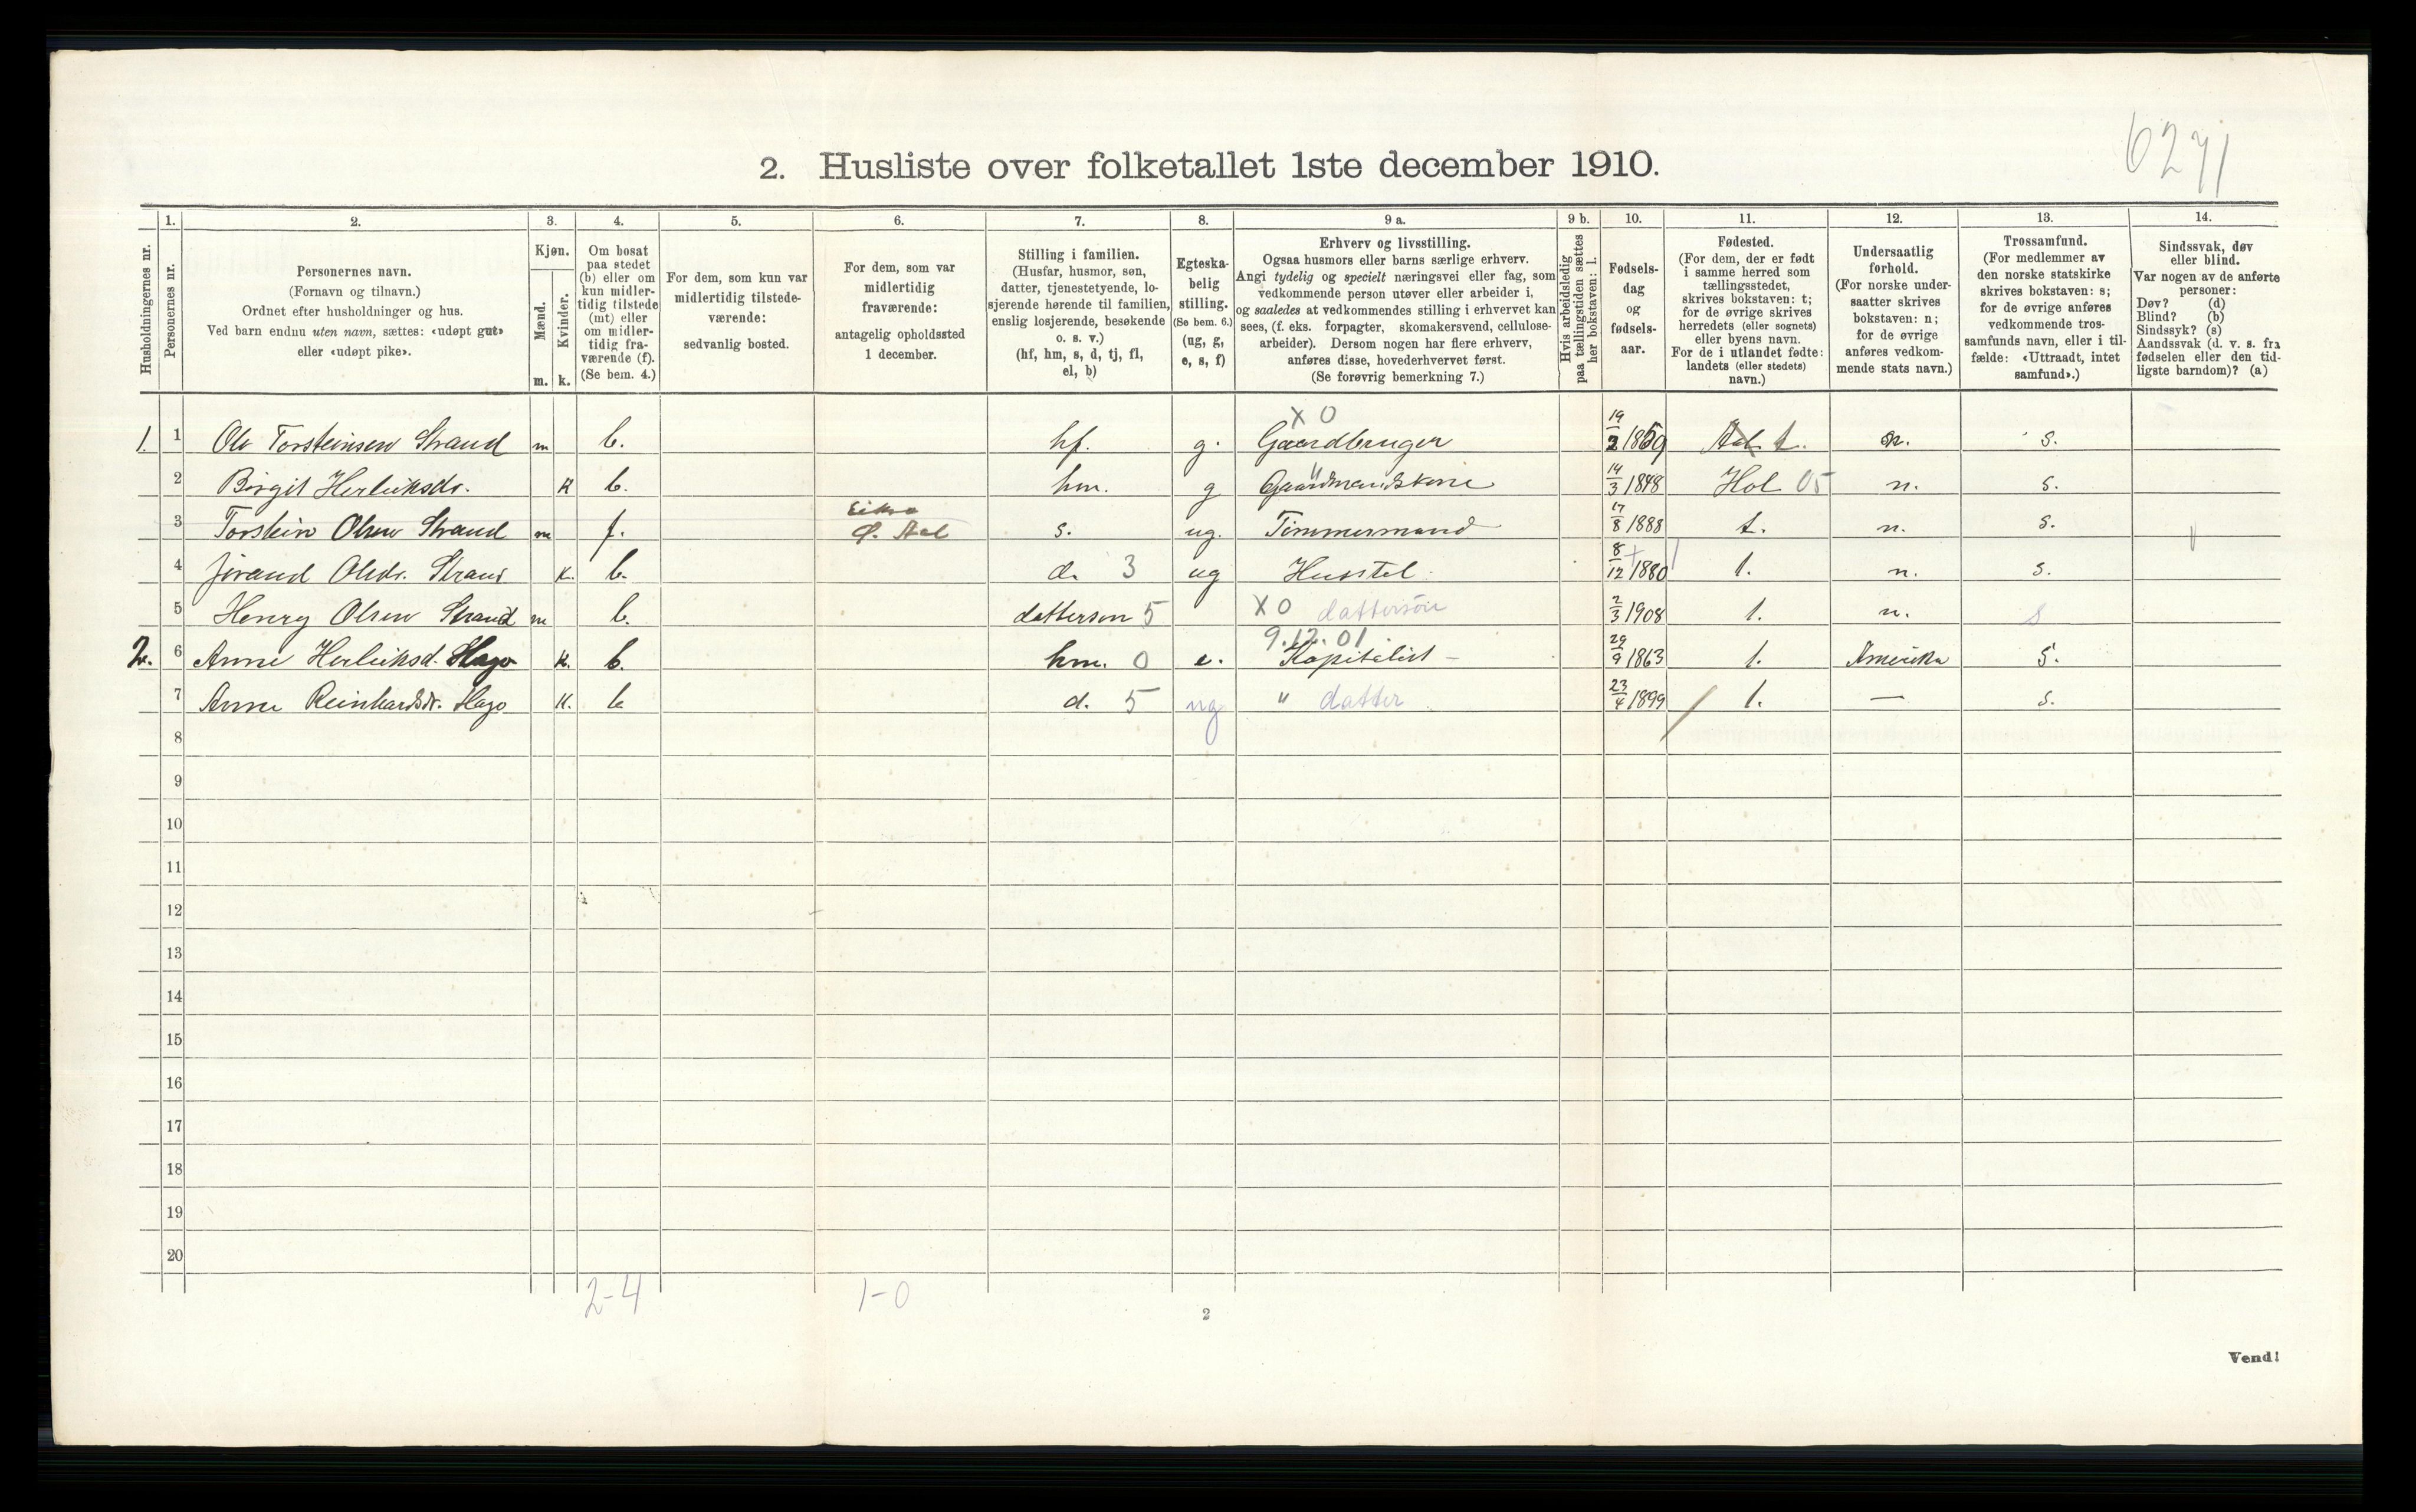 6271
2. Husliste over folketallet 1ste december 1910.
Husholdningernes nr.
1. Personernes nr.
2. Personernes navn.
(Fornavn og tilnavn.)
Ordnet efter husholdninger og hus.
Ved barn endnu uten navn, sættes: «udøpt gut»
eller «udøpt pike».
3. Kjøn.
Mænd. m.
Kvinder. k.
4. Om bosat
paa stedet
(b) eller om
kun midler-
tidig tilstede
(mt) eller
om midler-
tidig fra-
værende (f).
(Se bem. 4.)
5. For dem, som kun var
midlertidig tilstede-
værende:
sedvanlig bosted.
6. For dem, som var
midlertidig
fraværende:
antagelig opholdssted
1 december.
7. Stilling i familien.
(Husfar, husmor, søn,
datter, tjenestetyende, lo-
sjerende hørende til familien,
enslig losjerende, besøkende
o. s. v.)
(hf, hm, s, d, tj, fl,
el, b)
8. Egteska-
belig
stilling.
(Se bem. 6.)
(ug, g,
e, s, f)
9 a. Erhverv og livsstilling.
Ogsaa husmors eller barns særlige erhverv.
Angi tydelig og specielt næringsvei eller fag, som
vedkommende person utøver eller arbeider i,
og saaledes at vedkommendes stilling i erhvervet kan
sees, (f. eks. forpagter, skomakersvend, cellulose-
arbeider). Dersom nogen har flere erhverv,
anføres disse, hovederhvervet først.
(Se forøvrig bemerkning 7.)
9 b. Hvis arbeidsledig
paa tællingstiden sættes
her bokstaven: l.
10. Fødsels-
dag
og
fødsels-
aar.
11. Fødested.
(For dem, der er født
i samme herred som
tællingsstedet,
skrives bokstaven: t;
for de øvrige skrives
herredets (eller sognets)
eller byens navn.
For de i utlandet fødte:
landets (eller stedets)
navn.)
12. Undersaatlig
forhold.
(For norske under-
saatter skrives
bokstaven: n;
for de øvrige
anføres vedkom-
mende stats navn.)
13. Trossamfund.
(For medlemmer av
den norske statskirke
skrives bokstaven: s;
for de øvrige anføres
vedkommende tros-
samfunds navn, eller i til-
fælde: «Uttraadt, intet
samfund».)
14. Sindssvak, døv
eller blind.
Var nogen av de anførte
personer:
Døv? (d)
Blind? (b)
Sindssyk? (s)
Aandssvak (d. v. s. fra
fødselen eller den tid-
ligste barndom)? (a)
X 0
1. 1 Ole Torsteinsen Strand m b. hf. g. Gaardbruger 19/2 1859 Aal t. n. s.
2 Birgit Herleiksdr. k b. hm. g Gaardmandskone 14/3 1848 Hol 05 n. s.
Eikro
3 Torstein Olsen Strand m f. Ø. Aal s. ug. Tømmermand 17/8 1888 t. n. s.
4 Jørand Olsdr. Strand k. b. d. 3 ug Husstel 8/12 1880 t. n. s.
5 Henry Olsen Strand m b. dattersøn 5 X 0 dattersøn 2/3 1908 t. n. s
9.12.01
2. 6 Anne Herleiksd. Hago k. b. hm. 0 e. Kapitalist 29/9 1863 t. Amerika s.
7 Anne Reinhardsdr. Hago k. b d. 5 ug " datter 23/4 1899 t. — s.
8
9
10
11
12
13
14
15
16
17
18
19
20
2-4 1-0
2
Vend!